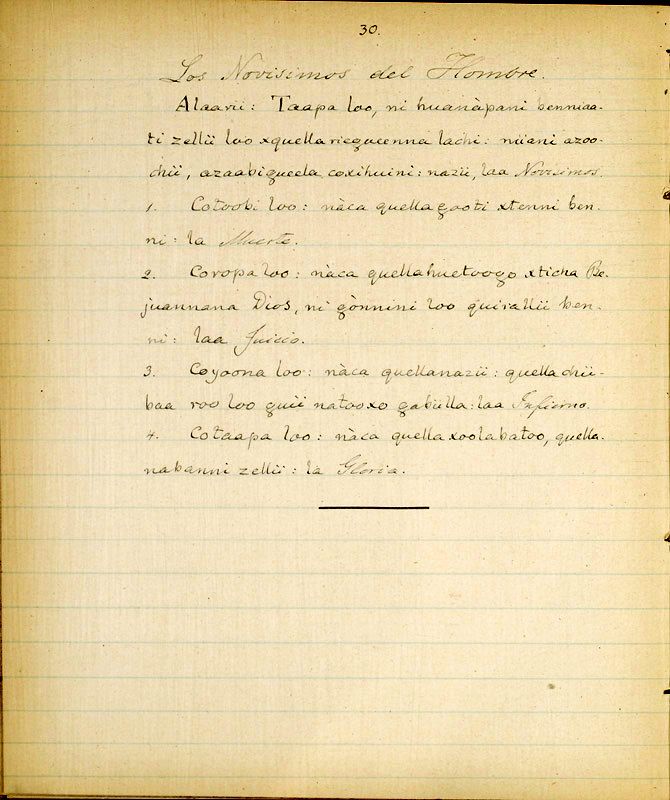 30.
Los Novisimos del Hombre.
Alaarii: Taapa loo, ni huanàpani benniaa-
ti zellii loo xquellariegueenna lachi: niiani azoo-
chii, azaabigueela coxihuini: nazii, laa Novisimos.
1. Cotoobi loo: nàca quellagooti xtenni ben-
ni: la Muerte.
2. Coropa loo: nàca quellahuetoogo xticha Be-
juannana Dios, ni gònnini loo quirallii ben-
ni: laa Juicio.
3. Coyoona loo: nàca quellanazii: quellachii-
baa roo loo guii natooxo gabiilla: laa Infierno.
4. Cotaapa loo: nàca quellaxoolabatoo, quella-
nabanni zellii: la Gloria.